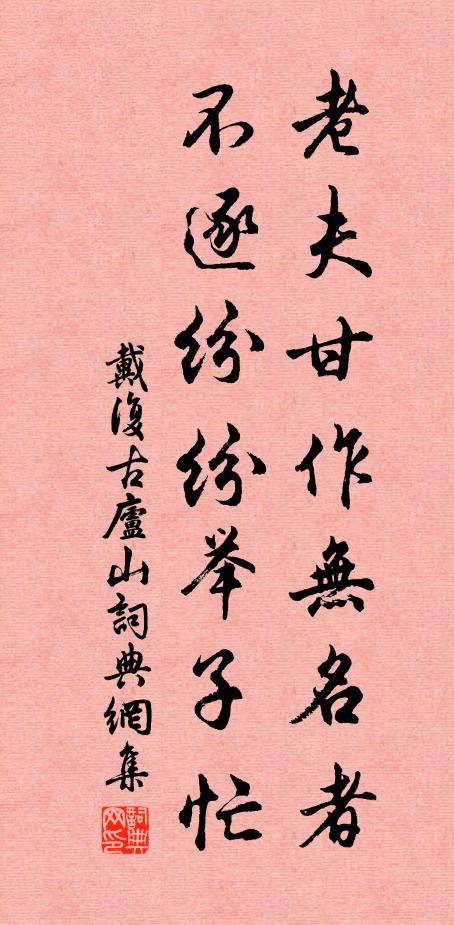 老夫甘作無名者
不逐紛紛举子忙
戴復古廬山詞典網集
詞典网印